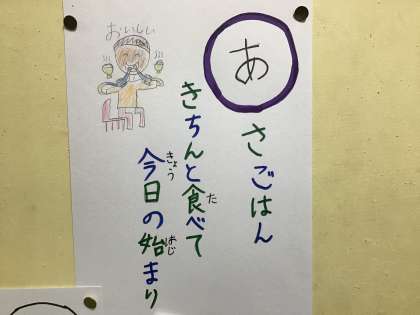 あ
さごはん
きちんと食べて
た
今日の始まり
きょう
はじ
おいしい